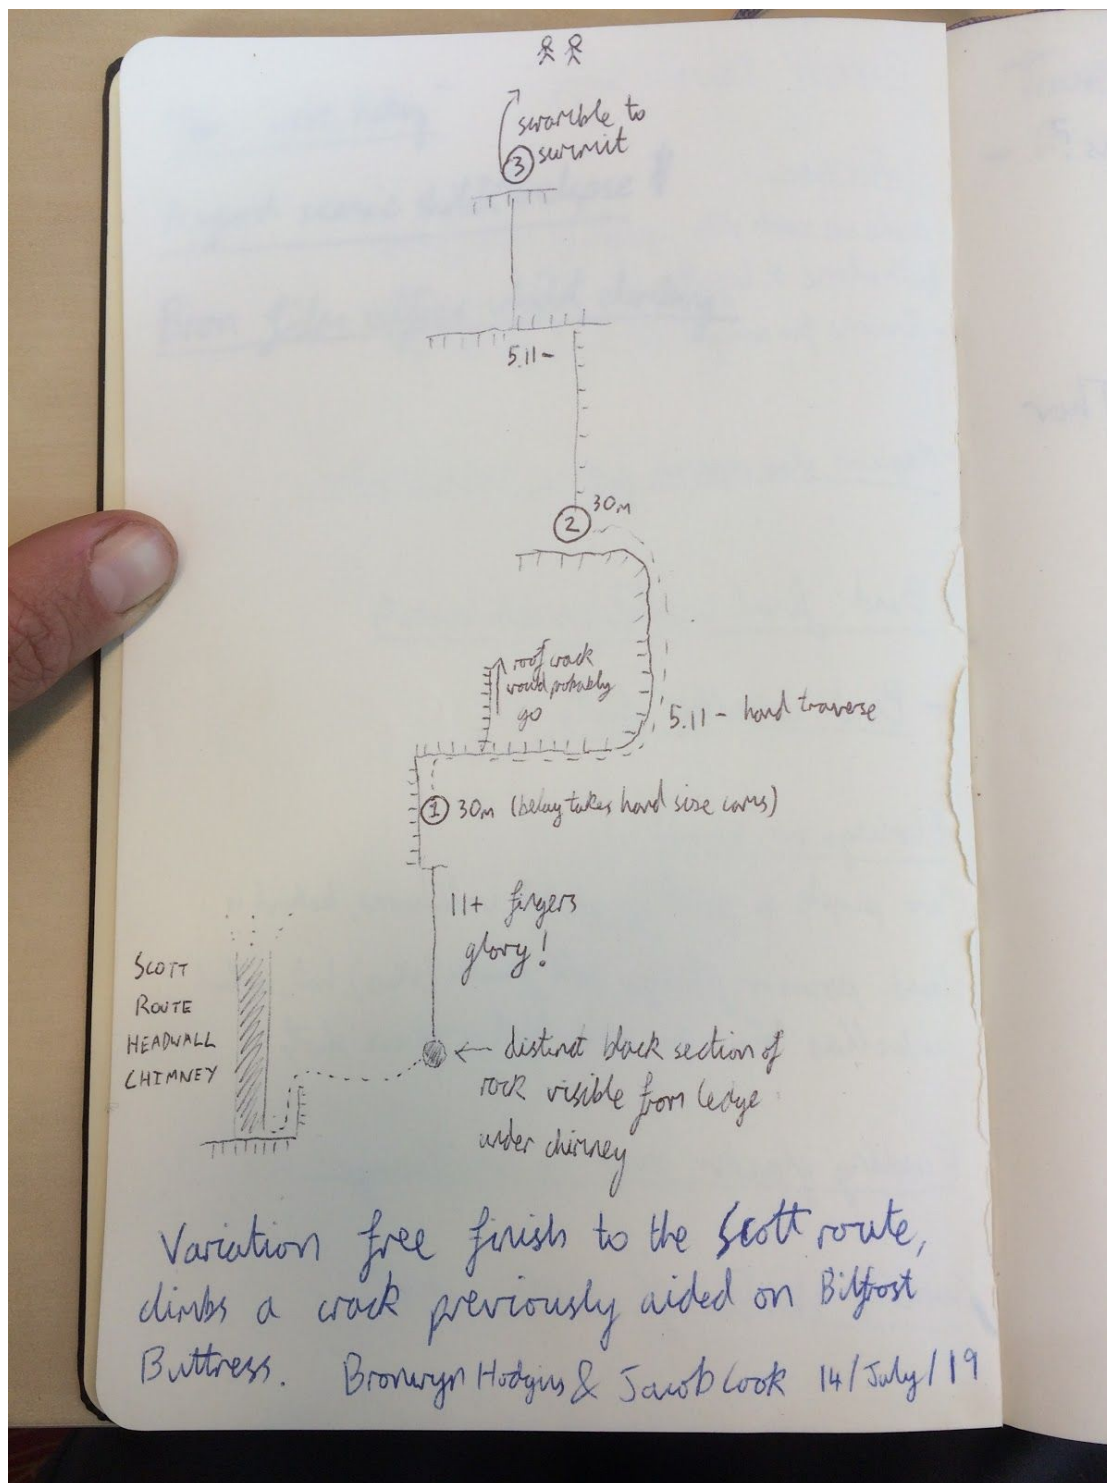 scramble to
summit
3
5.11-
30m
2
roof crack
would probably
go
5.11- hand traverse
1 30m (belay takes hand size cams)
11+ fingers
glory!
SCOTT
ROUTE
HEADWALL
CHIMNEY
← distinct black section of
rock visible from ledge
under chimney
Variation free finish to the Scott route,
climbs a crack previously aided on Bilfrost
Buttress. Bronwyn Hodgins & Jacob Cook 14/July/19